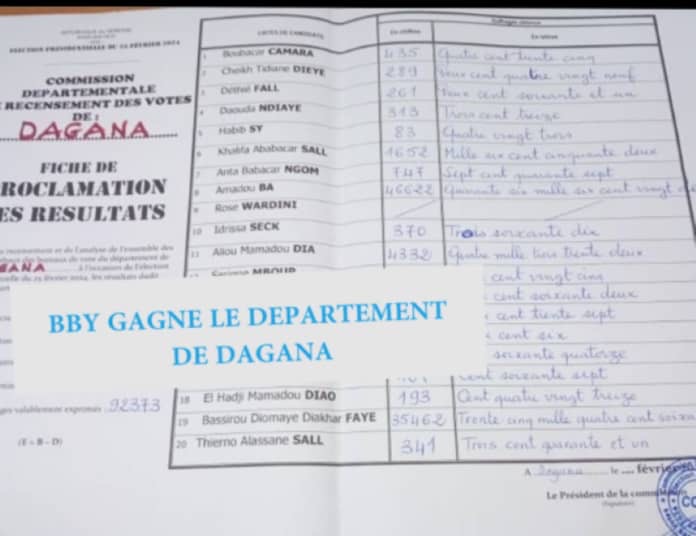 REPUBLIQUE DU SENEGAL
ELECTION PRESIDENTIELLE DU 25 FÉVRIER 2024
COMMISSION
DEPARTEMENTALE
RECENSEMENT DES VOTES
DE :
DAGANA
FICHE DE
ROCLAMATION
ES RESULTATS
recensement et de l'analyse de l'ensemble des
bureaux de vote du département de
GANA à l'occasion de l'élection
du 25 février 2024, les résultats
LISTES DE CANDIDATS En chiffres En lettres
1 Boubacar CAMARA 435 Quatre cent trente cinq
2 Cheikh Tidiane DIEYE 289 Deux cent quatre vingt neuf
3 Déthié FALL 261 Deux cent soixante et un
4 Daouda NDIAYE 313 Trois cent treize
5 Habib SY 83 Quatre vingt trois
6 Khalifa Ababacar SALL 1652 Mille six cent cinquante deux
7 Anta Babacar NGOM 747 Sept cent quarante sept
8 Amadou BA 46622 Quarante six mille six cent vingt
9 Rose WARDINI
10 Idrissa SECK 370 Trois soixante dix
11 Aliou Mamadou DIA 4332 Quatre mille trois trente deux
MBOUP cent vingt cinq
cent soixante deux
cent trente sept
cent six
soixante quatorze
cent soixante sept
BBY GAGNE LE DEPARTEMENT
DE DAGANA
18 El Hadji Mamadou DIAO 193 Cent quatre vingt treize
19 Bassirou Diomaye Diakhar FAYE 35462 Trente cinq mille quatre cent soixa
20 Thierno Alassane SALL 341 Trois cent quarante et un
valablement exprimés : 92373
(E = B – D)
A Dagana le .... février
Le Président de la comm
(Signature)